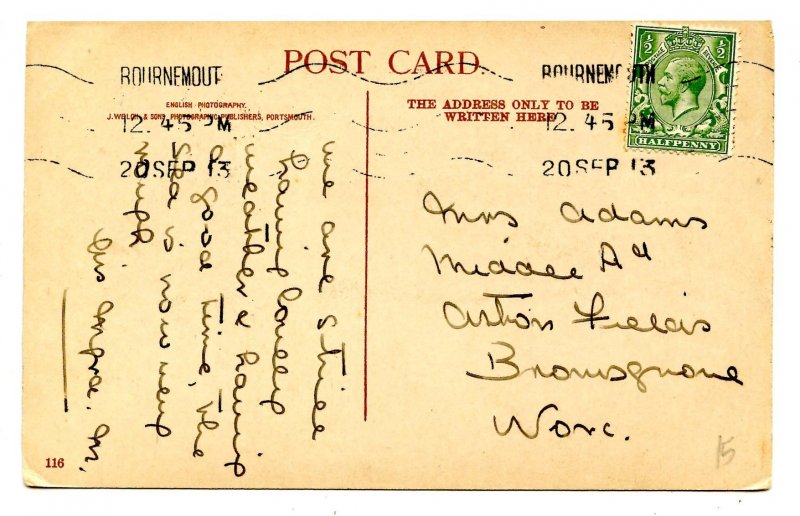 POST CARD.
BOURNEMOUT
12.45 PM
20 SEP 13
BOURNEMOUTH
12.45 PM
20 SEP 13
½ ½
HALFPENNY
ENGLISH PHOTOGRAPHY.
J. WELCH & SONS, PHOTOGRAPHIC PUBLISHERS, PORTSMOUTH.
THE ADDRESS ONLY TO BE
WRITTEN HERE
we are still
having lovely
weather & having
a good time, the
sea is now very
rough
Mrs Adams
Middle Rd
Aston Fields
Bromsgrove
Worc.
116
15